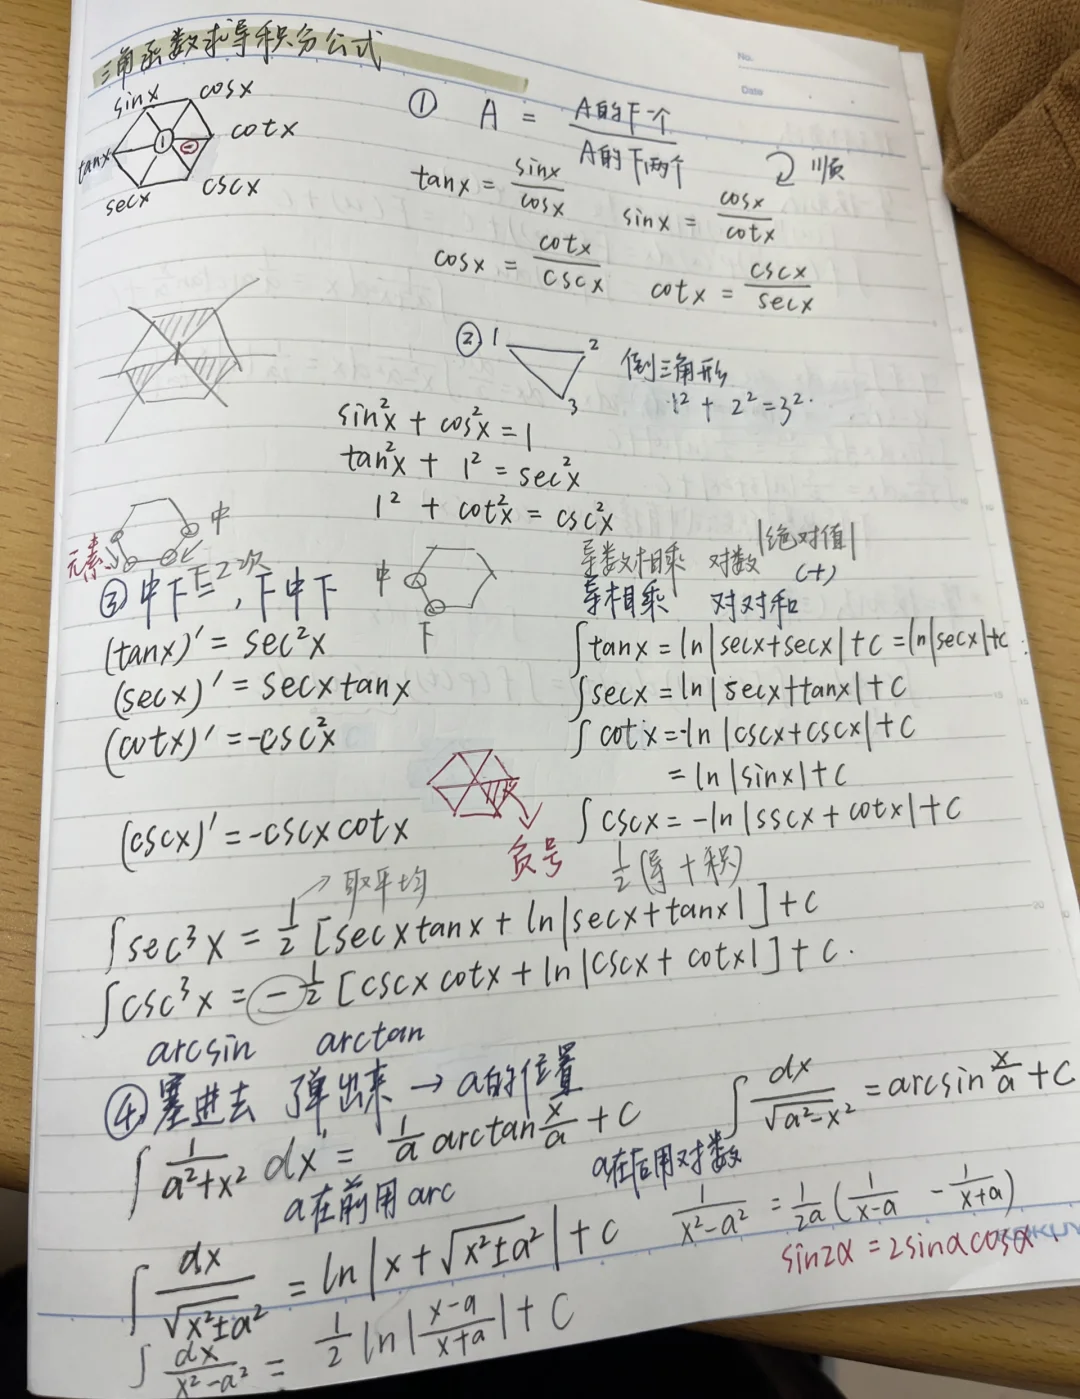 三角函数求导积分公式
No.
Date
sinx cosx
tanx 1 ⊖ cotx
secx cscx
① A = A的下一个 / A的下两个 顺
tanx = sinx/cosx sinx = cosx/cotx
cosx = cotx/cscx cotx = cscx/secx
② 1 2 3 倒三角形
1² + 2² = 3².
sin²x + cos²x = 1
tan²x + 1² = sec²x
1² + cot²x = csc²x
元素 中
中 下
③ 中下下2次, 下中下
导数相乘 对数 |绝对值| (+)
导相乘 对对和
(tanx)' = sec²x
(secx)' = secxtanx
(cotx)' = -csc²x
(cscx)' = -cscxcotx
∫tanx = ln|secx+secx|+C = ln|secx|+C
∫secx = ln|secx+tanx|+C
∫cotx = -ln|cscx+cscx|+C
= ln|sinx|+C
∫cscx = -ln|sscx+cotx|+C
负号
→取平均 1/2(导+积)
∫sec³x = 1/2[secxtanx + ln|secx+tanx|]+C
∫csc³x = -1/2[cscxcotx + ln|cscx+cotx|]+C.
arcsin arctan
④ 塞进去 弹出来 → a的位置
∫ 1/(a²+x²) dx = 1/a arctan x/a + C
∫ dx/√(a²-x²) = arcsin x/a + C
a在前用arc a在后用对数
1/(x²-a²) = 1/2a (1/(x-a) - 1/(x+a))
∫ dx/√(x²±a²) = ln|x+√(x²±a²)|+C
sin2α = 2sinαcosα
∫ dx/(x²-a²) = 1/2 ln|(x-a)/(x+a)|+C